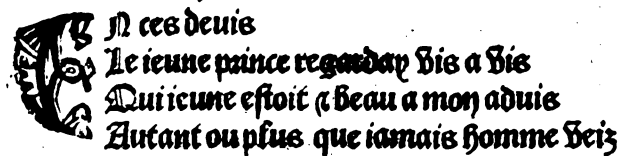 EN ces deuis
Le ieune prince regarday vis a vis
Qui ieune estoit & beau a mon aduis
Autant ou plus que iamais homme veiz